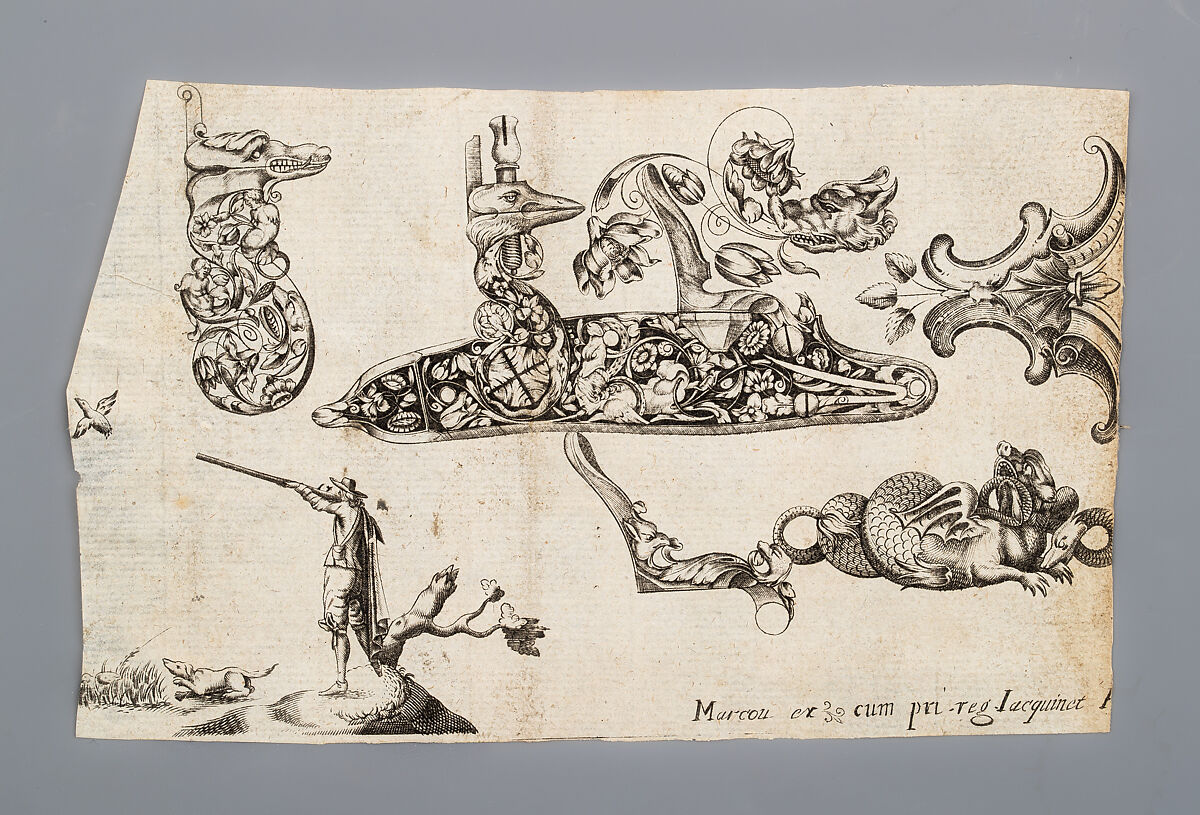 Marcou ex cum pri reg Iacquinet